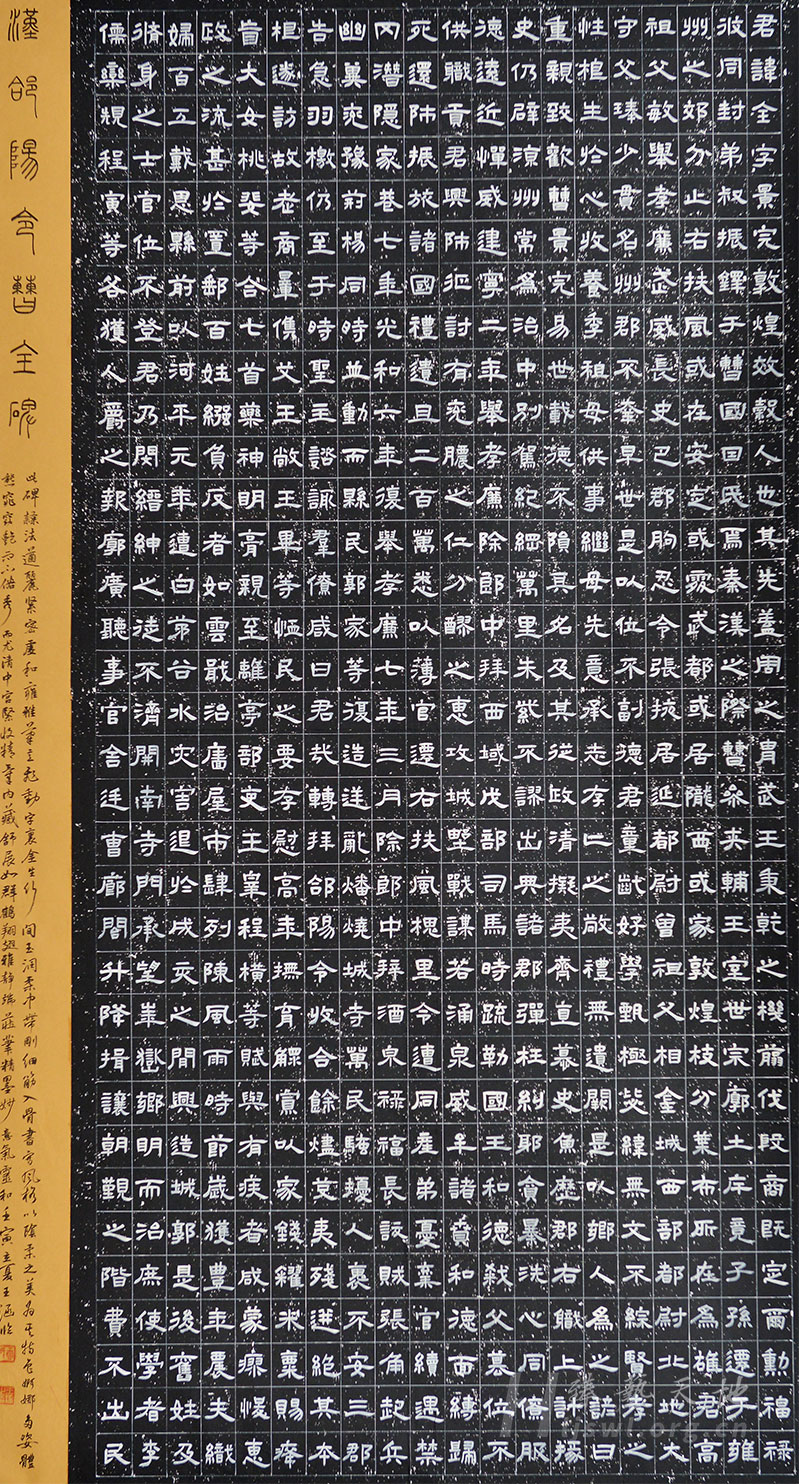 君諱全字景完敦煌效穀人也其先蓋周之胄武王秉乾之機翦伐殷商既定爾勳福祿
攸同封弟叔振鐸于曹國因氏焉秦漢之際曹參夾輔王室世宗廓土斥竟子孫遷于雍
州之郊分止右扶風或在安定或處武都或居隴西或家敦煌枝分葉布所在為雄君高
祖父敏舉孝廉武威長史巴郡朐忍令張掖居延都尉曾祖父相金城西部都尉北地大
守父琫少貫名州郡不幸早世是以位不副德君童齔好學甄極毖緯無文不綜賢孝之
性根生於心收養季祖母供事繼母先意承志存亡之敬禮無遺闕是以鄉人為之諺曰
重親致歡曹景完易世載德不隕其名及其從政清擬夷齊直慕史魚歷郡右職上計掾
史仍辟涼州常為治中別駕紀綱萬里朱紫不謬出典諸郡彈枉糾邪貪暴洗心同僚服
德遠近憚威建寧二年舉孝廉除郎中拜西域戊部司馬時疏勒國王和德弒父篡位不
供職貢君興師征討有兗膿之仁分醪之惠攻城野戰謀若涌泉威牟諸賁和德面縛歸
死還師振旅諸國禮遺且二百萬悉以薄官遷右扶風槐里令遭同產弟憂棄官續遇禁
冈潛隱家巷七年光和六年復舉孝廉七年三月除郎中拜酒泉祿福長訞賊張角起兵
幽冀兗豫荊楊同時並動而縣民郭家等復造逆亂燔燒城寺萬民騷擾人裹不安三郡
告急羽檄仍至于時聖主諮諏羣僚咸曰君哉轉拜郃陽令收合餘燼芟夷殘迸絕其本
根遂訪故老商量儁艾王敞王畢等恤民之要存慰高年撫育鰥寡以家錢糴米粟賜癃
盲大女桃婓等合七首藥神明膏親至離亭部吏王宰程橫等賦與有疾者咸蒙瘳悛惠
政之流甚於置郵百姓繈負反者如雲戢治廧屋市肆列陳風雨時節歲獲豐年農夫織
婦百工戴恩縣前以河平元年遭白茅谷水灾害退於戌亥之間興造城郭是後舊姓及
脩身之士官位不登君乃閔縉紳之徒不濟開南寺門承望華嶽鄉明而治庶使學者李
儒欒規程寅等各獲人爵之報廓廣聽事官舍廷曹廊閤升降揖讓朝覲之階費不出民
漢郃陽令曹全碑
此碑隸法遒麗緊密虛和雍雅筆意飛動字裏金生行間玉潤柔中帶剛細筋入骨書寫風格以陰柔之美為其特色婀娜多姿體
態窈窕艷而不俗秀而尤清中宮緊收精華內藏舒展如群鶴翔翅雅靜端莊筆精墨妙意氣靈和壬寅立夏王涵臨